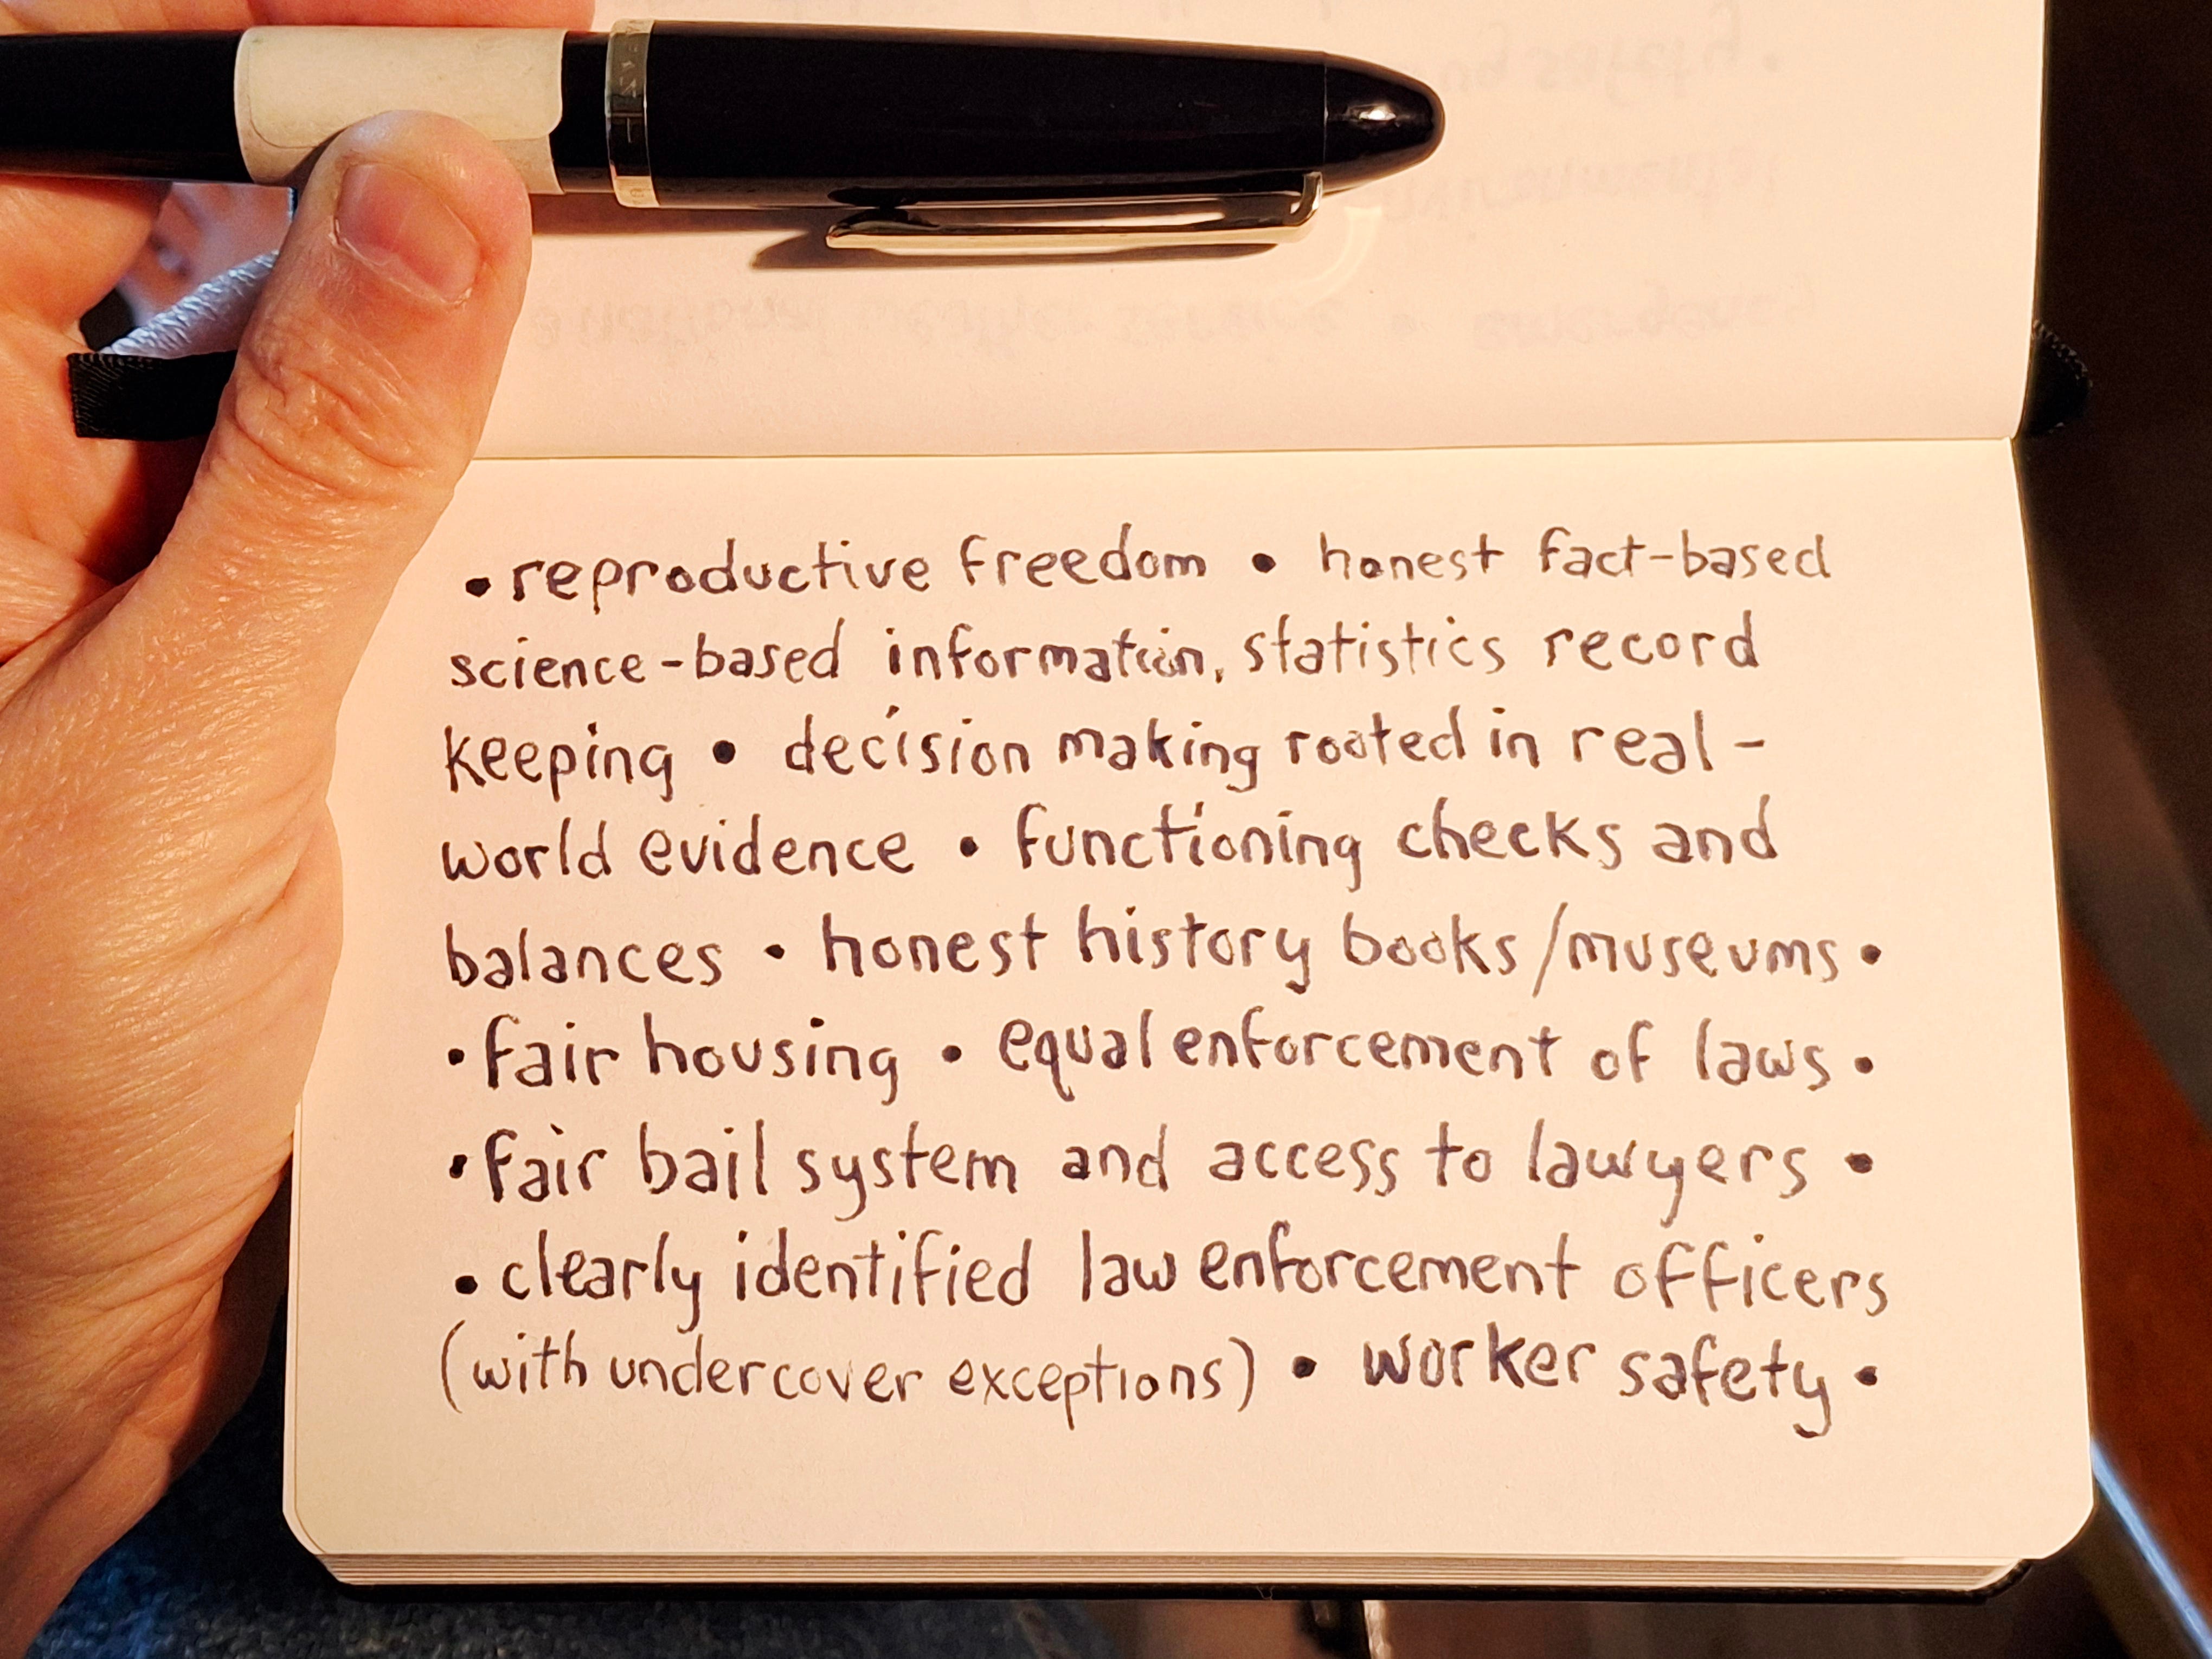 • reproductive freedom • honest fact-based
science-based information, statistics record
keeping • decision making rooted in real-
world evidence • functioning checks and
balances • honest history books/museums •
• fair housing • equal enforcement of laws •
• fair bail system and access to lawyers •
• clearly identified law enforcement officers
(with undercover exceptions) • worker safety •